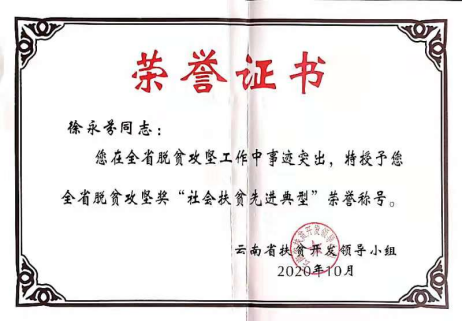 荣誉证书
徐永芬同志：
您在全省脱贫攻坚工作中事迹突出，特授予您
全省脱贫攻坚奖“社会扶贫先进典型”荣誉称号。
云南省扶贫开发领导小组
2020年10月